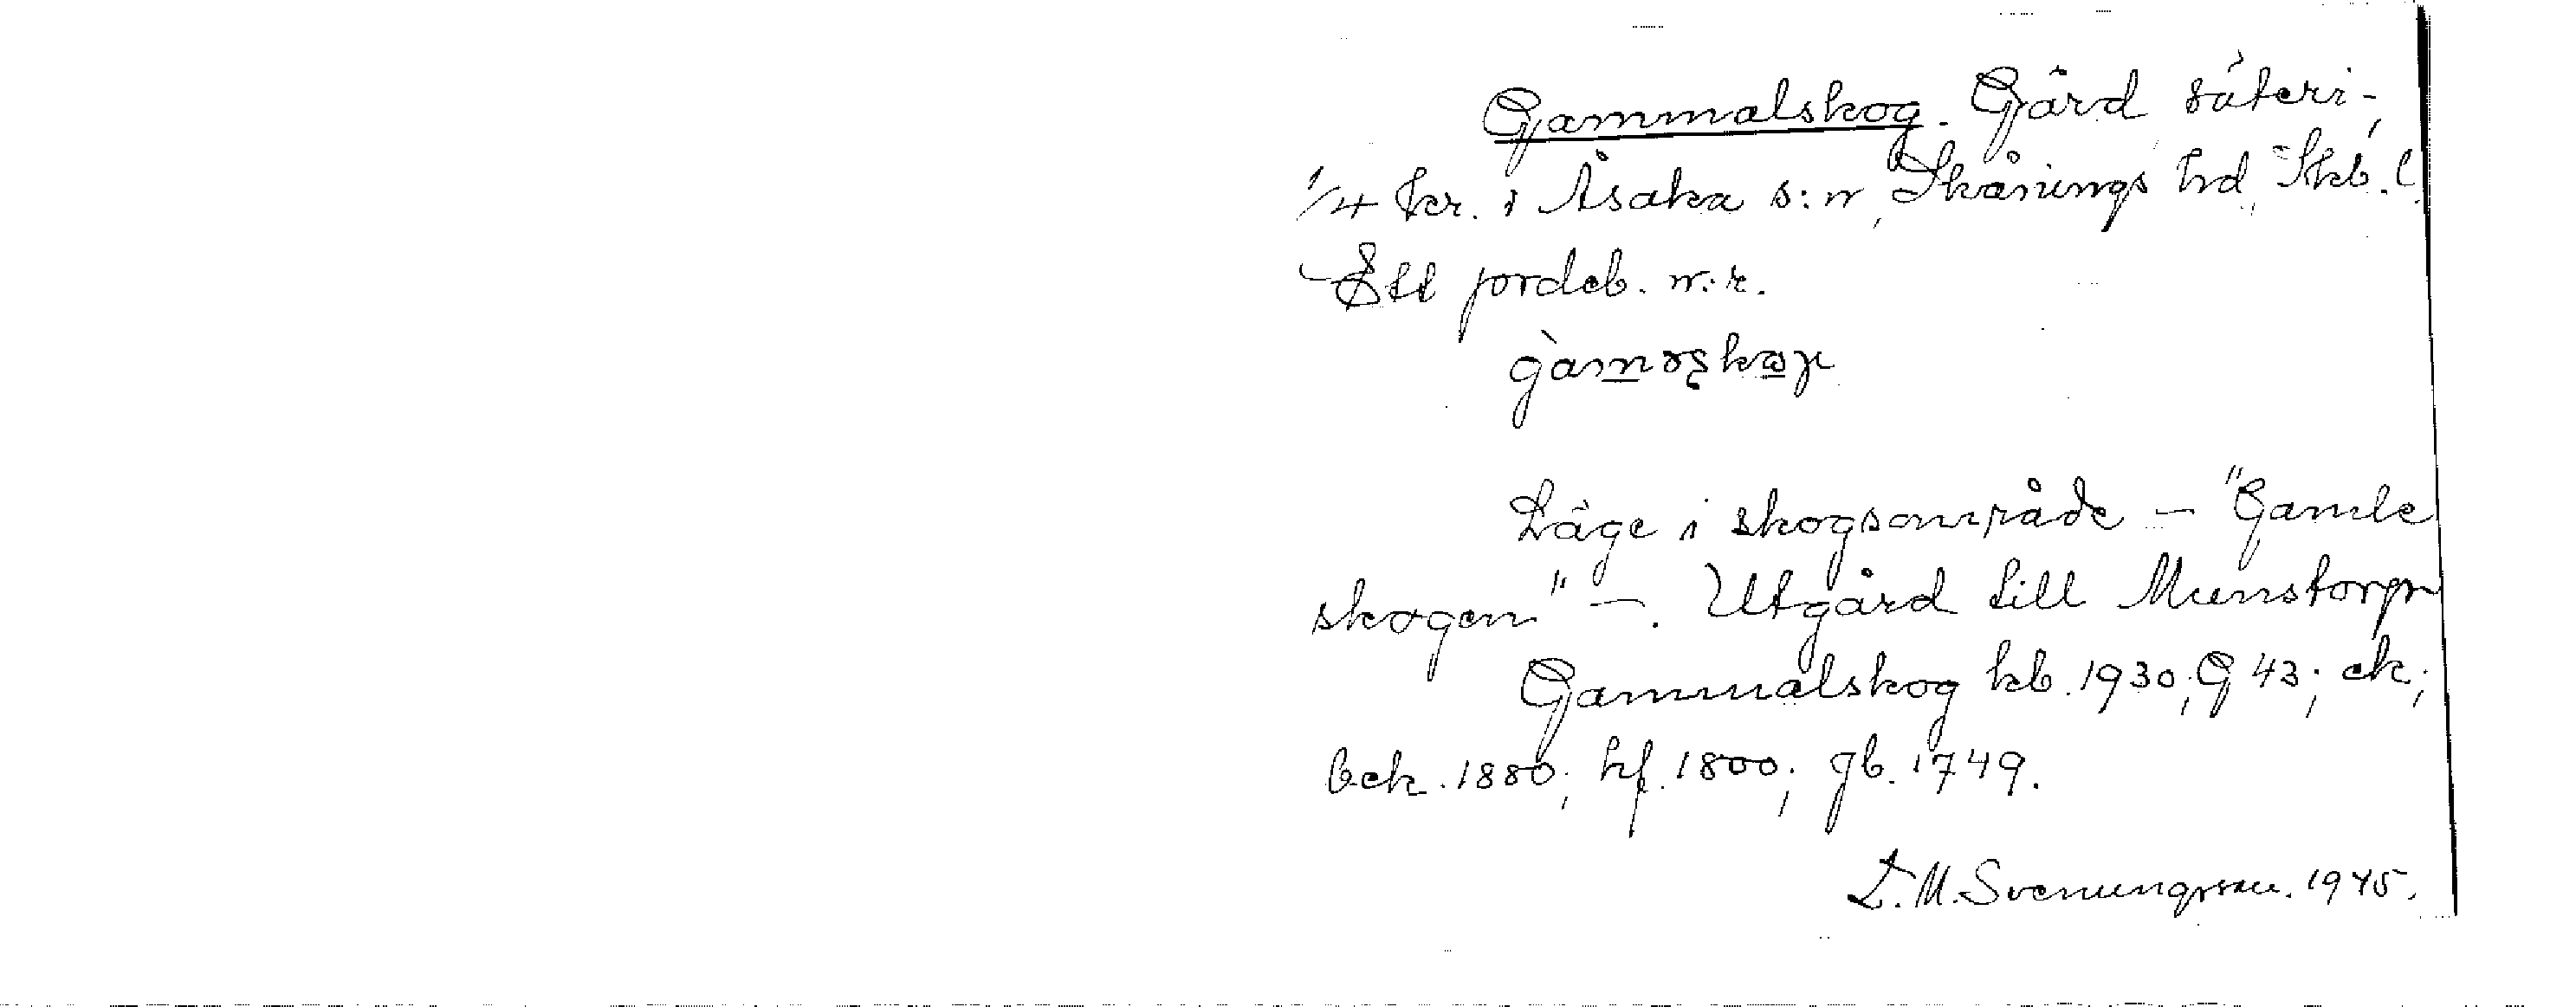 Gammalskog. Gård säteri,
1/4 kr. i Åsaka s:n, Skånings hd, Skb. l.
Ett jordeb. n:r.
Läge i skogsområde – "Gamle
skogen" –. Utgård till Munstorp
Gammalskog kb. 1930; G 43; ek;
bek. 1880; hf. 1800; gb. 1749.
L. M. Svenungsson. 1945.